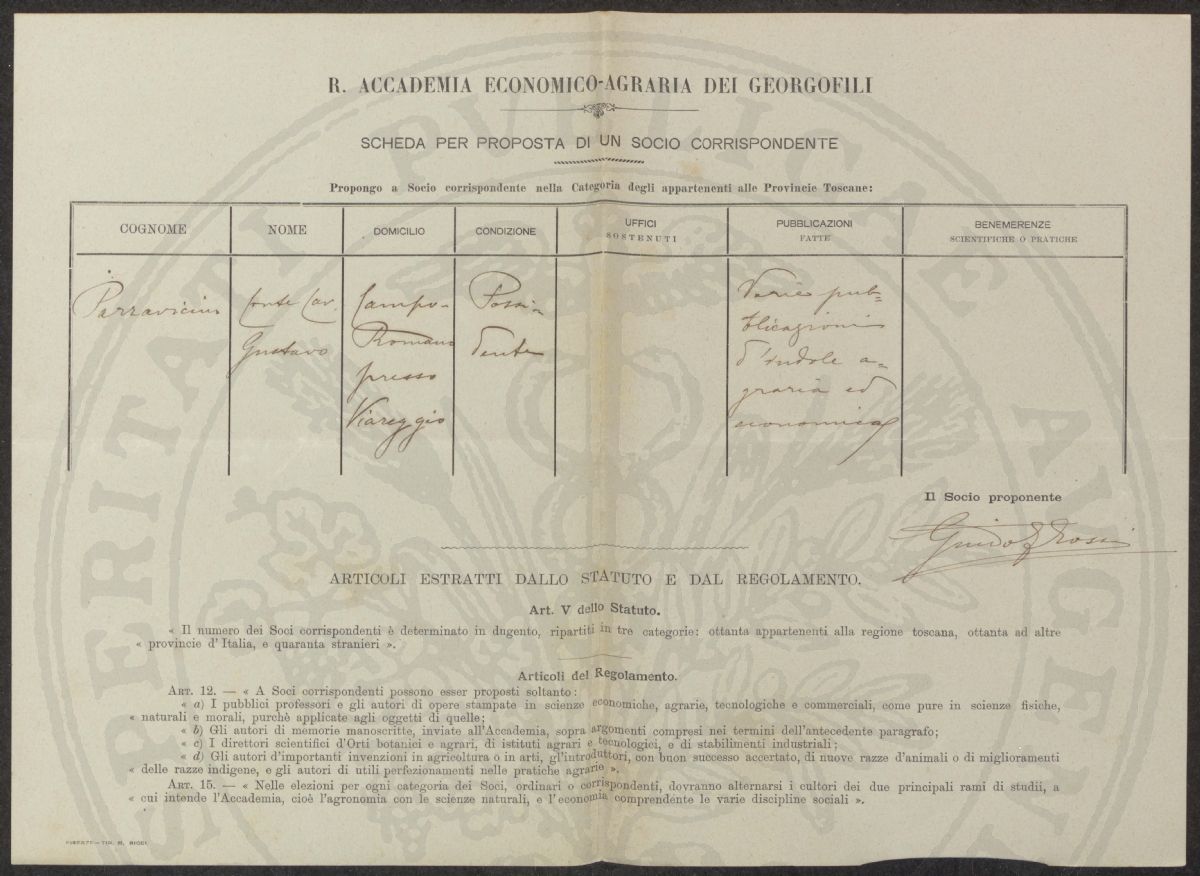 R. ACCADEMIA ECONOMICO-AGRARIA DEI GEORGOFILI
SCHEDA PER PROPOSTA DI UN SOCIO CORRISPONDENTE
Propongo a Socio corrispondente nella Categoria degli appartenenti alle Provincie Toscane:
COGNOME
NOME
DOMICILIO
CONDIZIONE
UFFICI
SOSTENUTI
PUBBLICAZIONI
FATTE
BENEMERENZE
SCIENTIFICHE O PRATICHE
Parravicini
Conte Cav.
Gustavo
Campo-
Romano
presso
Viareggio
Possi-
dente
Varie pub=
blicazioni
d'indole a=
graria ed
economica
Il Socio proponente
Guido
ARTICOLI ESTRATTI DALLO STATUTO E DAL REGOLAMENTO.
Art. V dello Statuto.
« Il numero dei Soci corrispondenti è determinato in dugento, ripartiti in tre categorie: ottanta appartenenti alla regione toscana, ottanta ad altre
« provincie d'Italia, e quaranta stranieri ».
Articoli del Regolamento.
ART. 12. — « A Soci corrispondenti possono esser proposti soltanto:
« a) I pubblici professori e gli autori di opere stampate in scienze economiche, agrarie, tecnologiche e commerciali, come pure in scienze fisiche,
« naturali e morali, purchè applicate agli oggetti di quelle;
« b) Gli autori di memorie manoscritte, inviate all'Accademia, sopra argomenti compresi nei termini dell'antecedente paragrafo;
« c) I direttori scientifici d'Orti botanici e agrari, di istituti agrari e tecnologici, e di stabilimenti industriali;
« d) Gli autori d'importanti invenzioni in agricoltura o in arti, gl'introduttori, con buon successo accertato, di nuove razze d'animali o di miglioramenti
« delle razze indigene, e gli autori di utili perfezionamenti nelle pratiche agrarie ».
ART. 15. — « Nelle elezioni per ogni categoria dei Soci, ordinari o corrispondenti, dovranno alternarsi i cultori dei due principali rami di studii, a
« cui intende l'Accademia, cioè l'agronomia con le scienze naturali, e l'economia comprendente le varie discipline sociali ».
FIRENZE — TIP. M. RICCI
PROSPERITATI PUBLICAE AUGENDAE